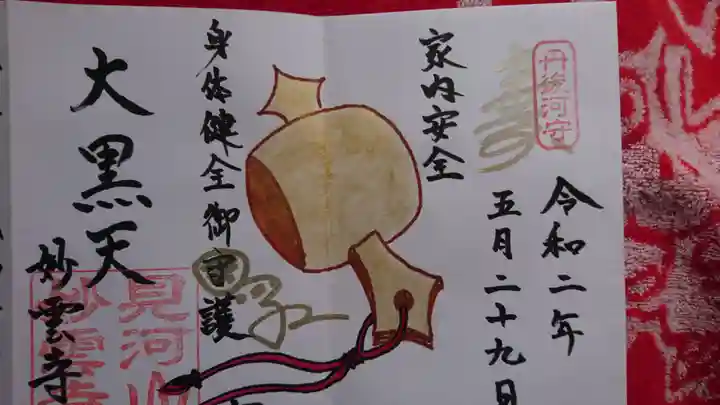 丹後河守
令和二年
五月二十九日
家内安全
身体健全御守護
大黒天
妙雲寺
見河山
妙雲寺